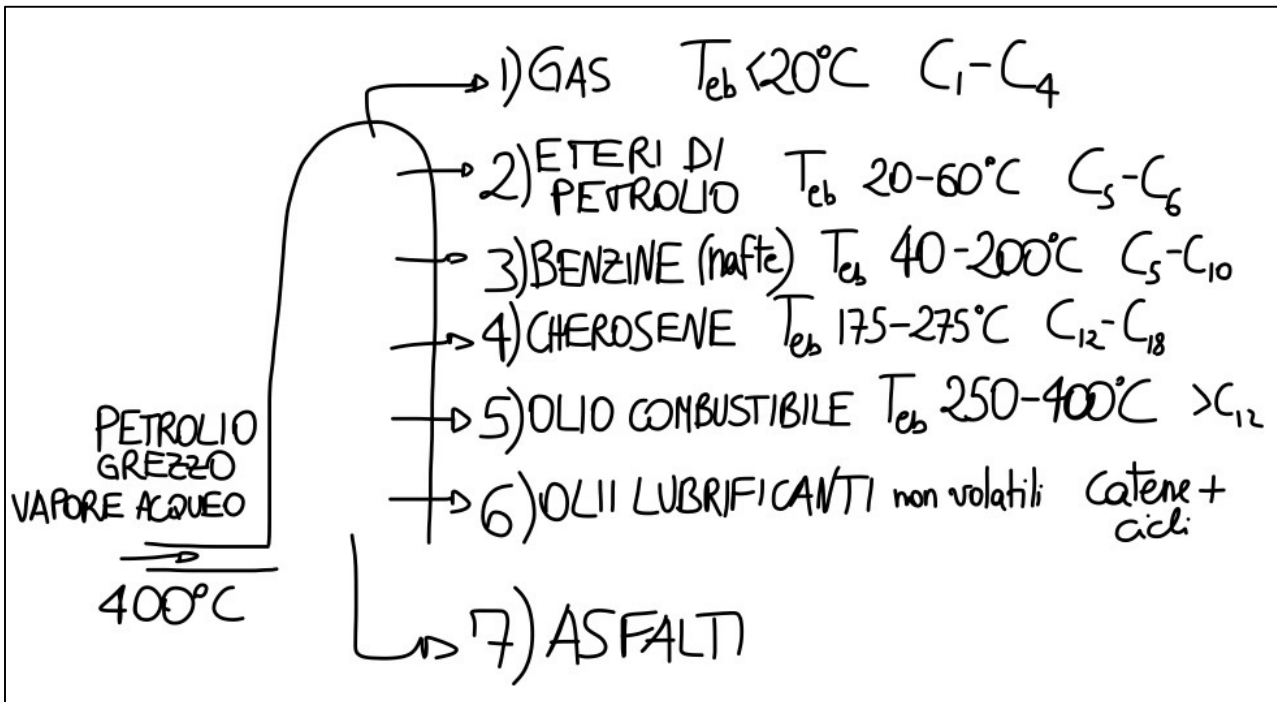 1) GAS T_eb <20°C C₁-C₄
2) ETERI DI
PETROLIO T_eb 20-60°C C₅-C₆
3) BENZINE (nafte) T_eb 40-200°C C₅-C₁₀
4) CHEROSENE T_eb 175-275°C C₁₂-C₁₈
5) OLIO COMBUSTIBILE T_eb 250-400°C >C₁₂
6) OLII LUBRIFICANTI non volatili catene +
cicli
PETROLIO
GREZZO
VAPORE ACQUEO
400°C
7) ASFALTI